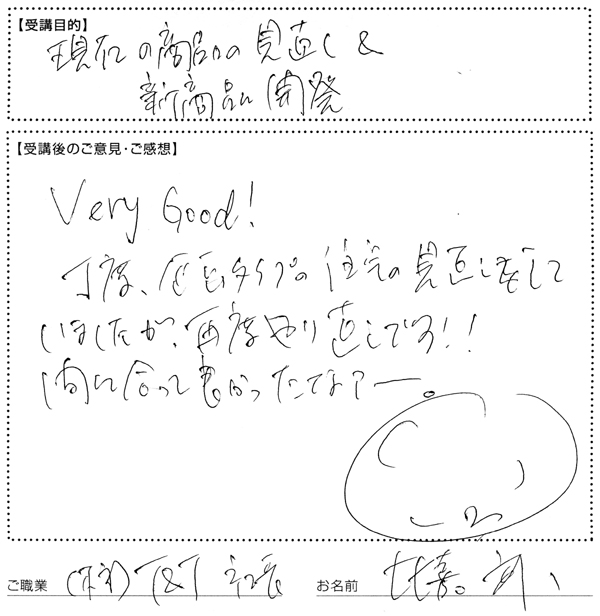 【受講目的】
現在の商品の見直し &
新商品開発
【受講後のご意見・ご感想】
Very Good!
丁度、タイプの住宅の見直しをして
いましたが、再度やり直しです!!
間に合って良かったですァー。
ご職業 (株)T&T 社長 お名前 比嘉